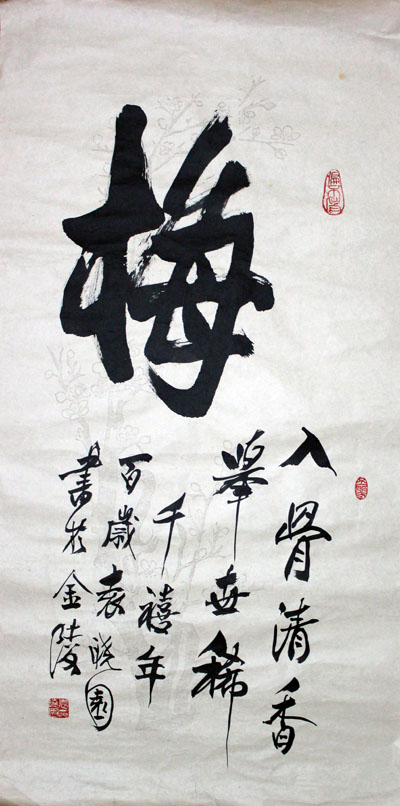 梅
入骨清香
舉世稀
千禧年
百歲袁晓園
書於金陵